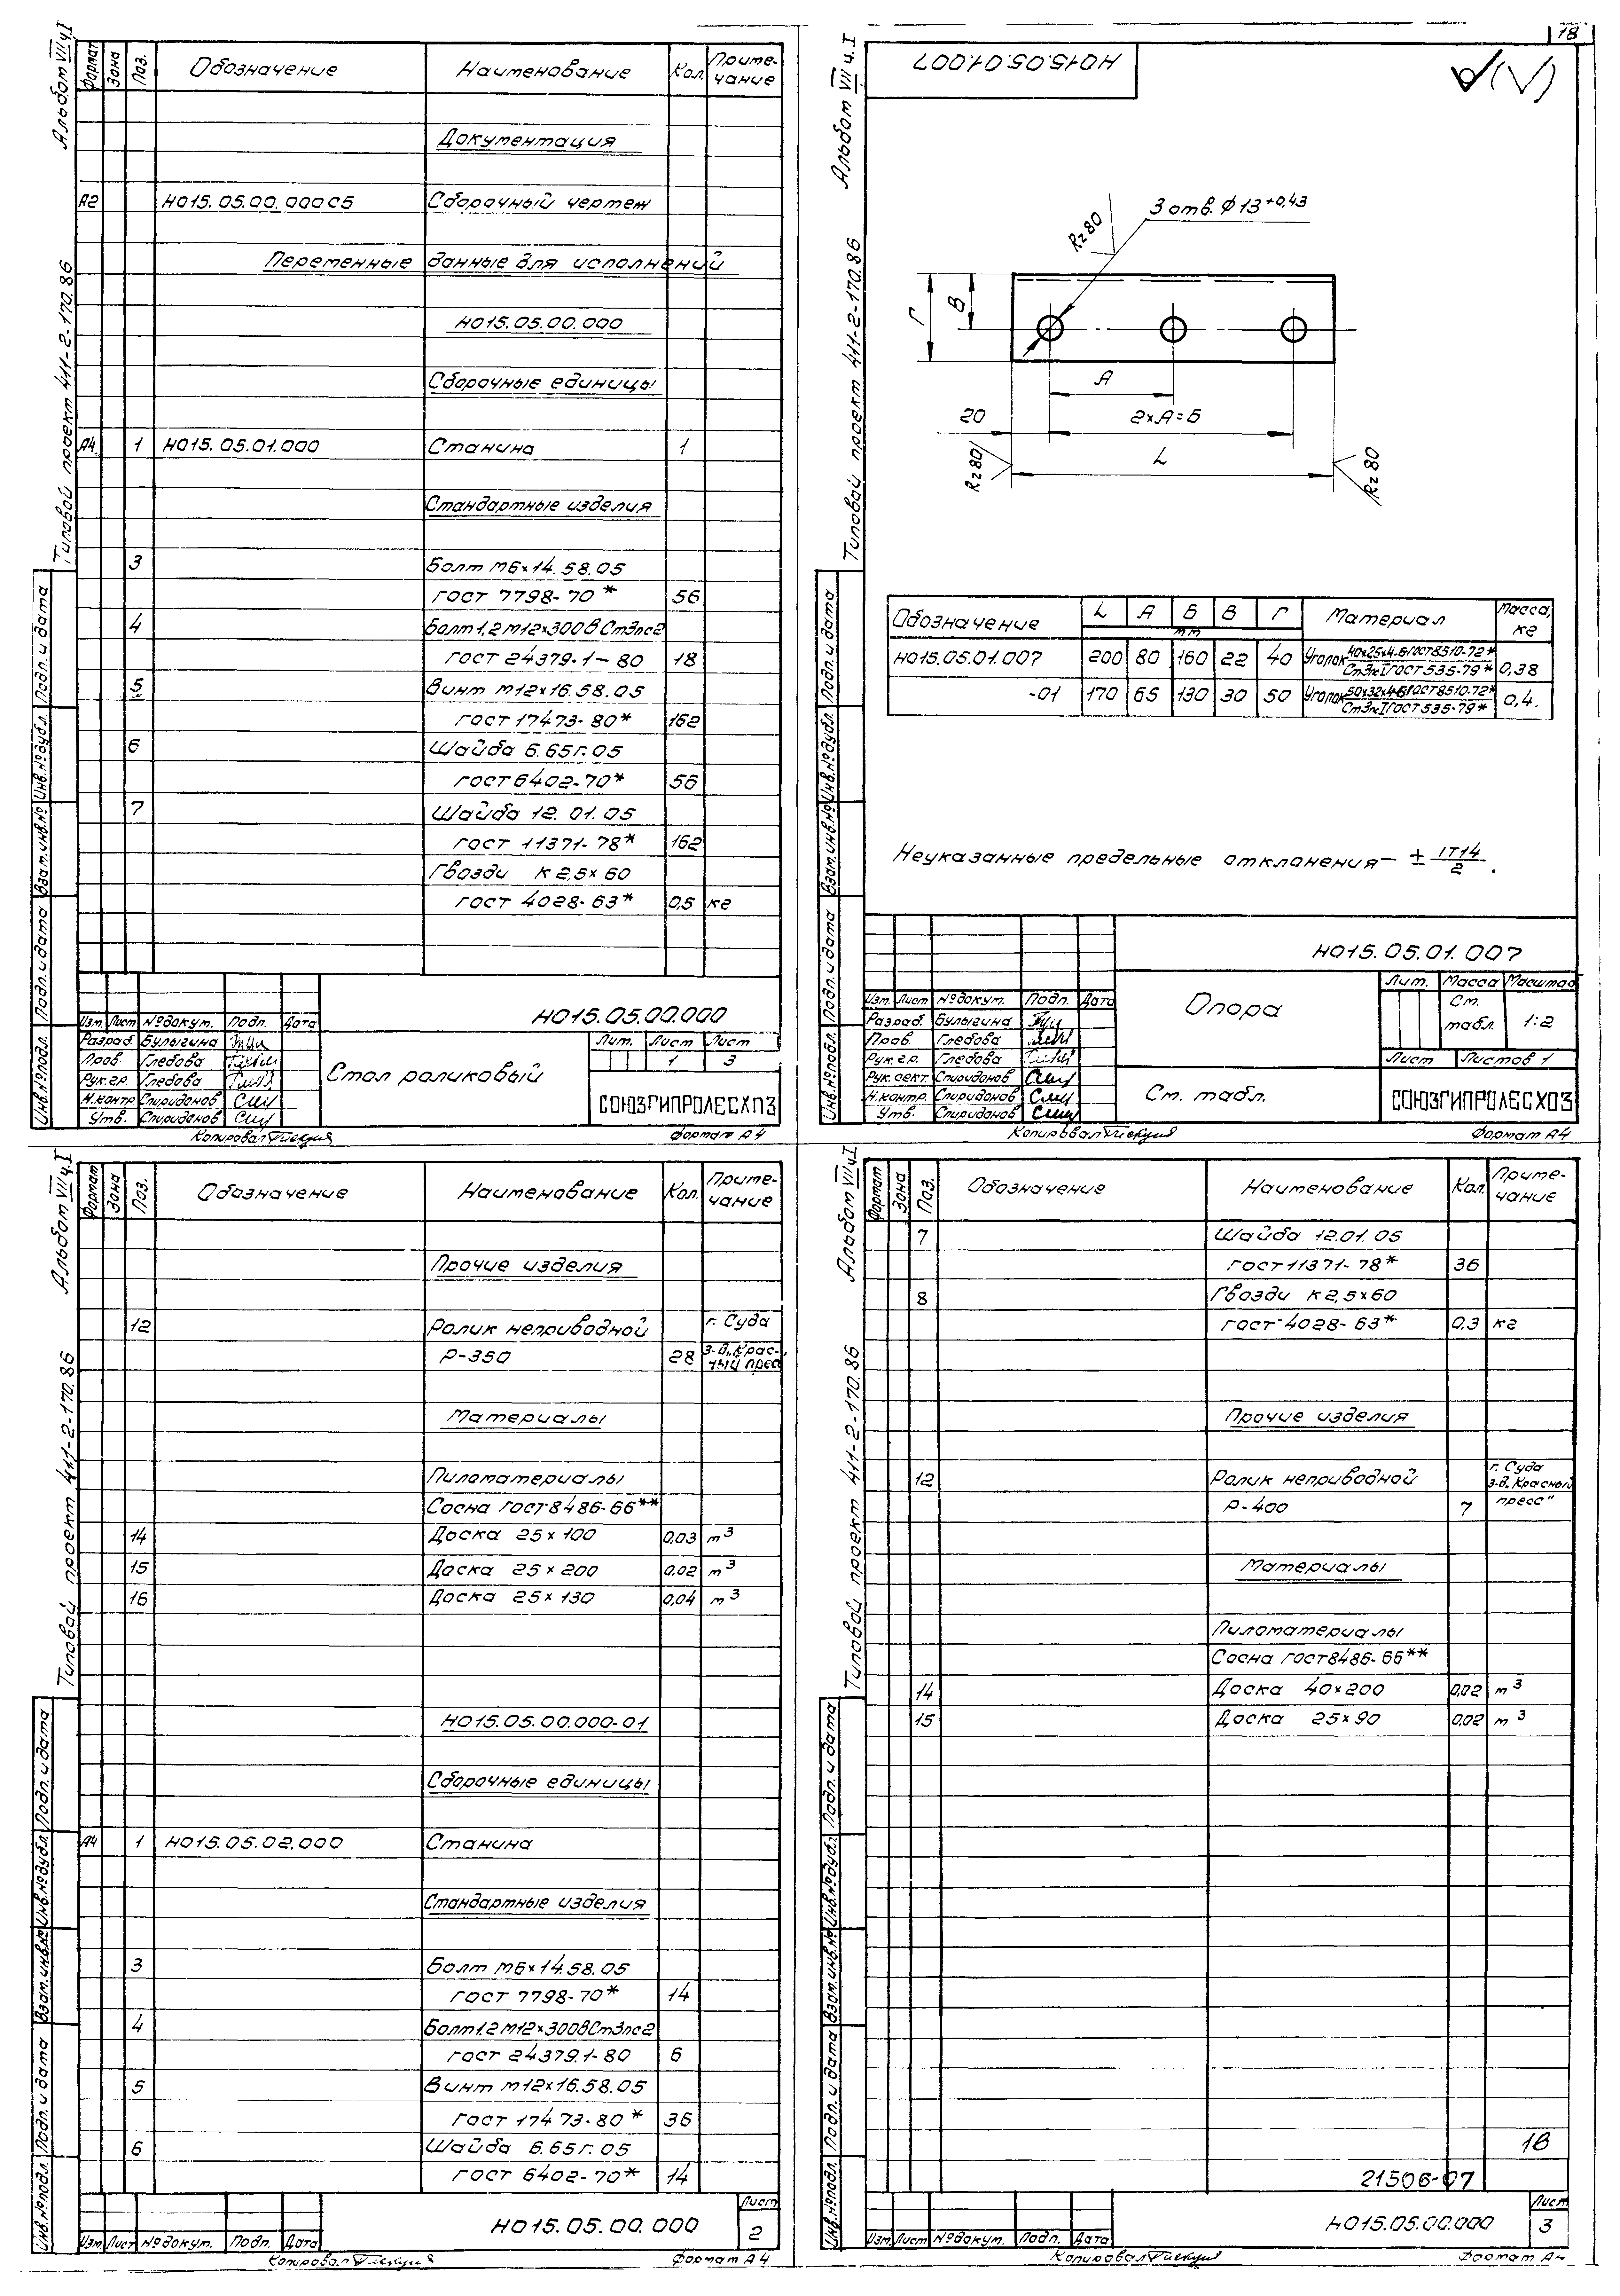 Альбом VII ч.I
Типовой проект 411-2-170.86
Формат Зона Поз. Обозначение Наименование Кол. Приме-
чание
Документация
А2 НО15.05.00.000СБ Сборочный чертеж
Переменные данные для исполнений
НО15.05.00.000
Сборочные единицы
А4 1 НО15.05.01.000 Станина 1
Стандартные изделия
3 Болт М6×14.58.05
ГОСТ 7798-70* 56
4 Болт1,2М12×300ВСт3пс2
ГОСТ 24379.1-80 18
5 Винт М12×16.58.05
ГОСТ 17473-80* 162
6 Шайба 6.65Г.05
ГОСТ 6402-70* 56
7 Шайба 12.01.05
ГОСТ 11371-78* 162
Гвозди К 2,5×60
ГОСТ 4028-63* 0,5 кг
Инв.№подл. Подп. и дата Взам.инв.№ Инв.№дубл. Подп. и дата
НО15.05.00.000
Изм. Лист №докум. Подп. Дата
Разраб. Булыгина
Пров. Гледова
Рук.гр. Гледова
Н.контр. Спиридонов
Утв. Спиридонов
Стол роликовый
Лит. Лист Лист
1 3
СОЮЗГИПРОЛЕСХОЗ
Копировал
Формат А4
18
Альбом VII ч.I
Типовой проект 411-2-170.86
НО15.05.01.007
(√)
3 отв. ϕ13 +0,43
Rz80
Г
В
А
20
2×А=Б
L
Rz80
Rz80
Обозначение L А Б В Г Материал Масса, кг
мм
НО15.05.01.007 200 80 160 22 40 Уголок 40×25×4-Б ГОСТ8510-72* / Ст3псIГОСТ535-79* 0,38
-01 170 65 130 30 50 Уголок 50×32×4-Б ГОСТ8510-72* / Ст3псIГОСТ535-79* 0,4.
Неуказанные предельные отклонения — ± IT14/2 .
Инв.№подл. Подп. и дата Взам.инв.№ Инв.№дубл. Подп. и дата
НО15.05.01.007
Изм. Лист №докум. Подп. Дата
Разраб. Булыгина
Пров. Гледова
Рук.гр. Гледова
Рук.сект. Спиридонов
Н.контр. Спиридонов
Утв. Спиридонов
Опора
Лит. Масса Масштаб
См.
табл. 1:2
Лист Листов 1
См. табл.
СОЮЗГИПРОЛЕСХОЗ
Копировал
Формат А4
Альбом VII ч.I
Типовой проект 411-2-170.86
Формат Зона Поз. Обозначение Наименование Кол. Приме-
чание
Прочие изделия
12 Ролик неприводной г. Суда
Р-350 28 з-д „Крас-
ный прес
Материалы
Пиломатериалы
Сосна ГОСТ8486-66**
14 Доска 25×100 0,03 м³
15 Доска 25×200 0,02 м³
16 Доска 25×130 0,04 м³
НО15.05.00.000-01
Сборочные единицы
А4 1 НО15.05.02.000 Станина
Стандартные изделия
3 Болт М6×14.58.05
ГОСТ 7798-70* 14
4 Болт1.2М12×300ВСт3пс2
ГОСТ 24379.1-80 6
5 Винт М12×16.58.05
ГОСТ 17473-80* 36
6 Шайба 6.65Г.05
ГОСТ 6402-70* 14
Инв.№подл. Подп. и дата Взам.инв.№ Инв.№дубл. Подп. и дата
Изм. Лист №докум. Подп. Дата
НО15.05.00.000
Лист
2
Копировал
Формат А4
Альбом VII ч.I
Типовой проект 411-2-170.86
Формат Зона Поз. Обозначение Наименование Кол. Приме-
чание
7 Шайба 12.01.05
ГОСТ11371-78* 36
8 Гвозди К2,5×60
ГОСТ 4028-63* 0,3 кг
Прочие изделия
12 Ролик неприводной г. Суда
з-д „Красный
Р-400 7 пресс"
Материалы
Пиломатериалы
Сосна ГОСТ8486-66**
14 Доска 40×200 0,02 м³
15 Доска 25×90 0,02 м³
18
21506-07
Инв.№подл. Подп. и дата Взам.инв.№ Инв.№дубл. Подп. и дата
Изм. Лист №докум. Подп. Дата
НО15.05.00.000
Лист
3
Копировал
Формат А4